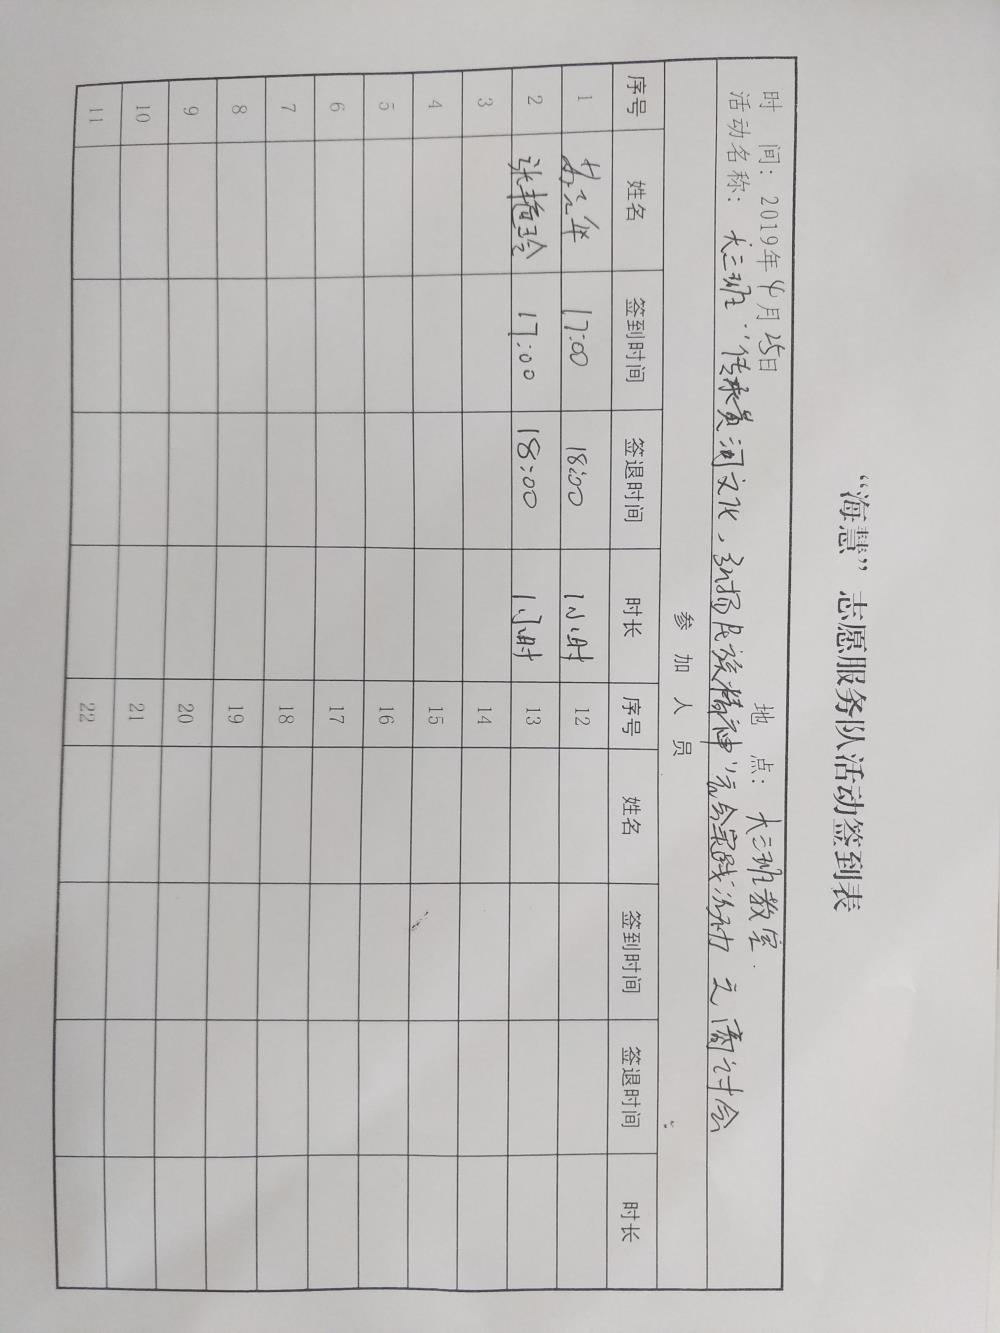 “海慧”志愿服务队活动签到表
时 间：2019年4月25日 地 点：大三班教室
活动名称：大三班“传承黄河文化，弘扬民族精神”综合实践活动之商讨会
参加人员
序号 姓名 签到时间 签退时间 时长 序号 姓名 签到时间 签退时间 时长
1 17:00 18:00 1小时 12
2 张艳玲 17:00 18:00 1小时 13
3 14
4 15
5 16
6 17
7 18
8 19
9 20
10 21
11 22